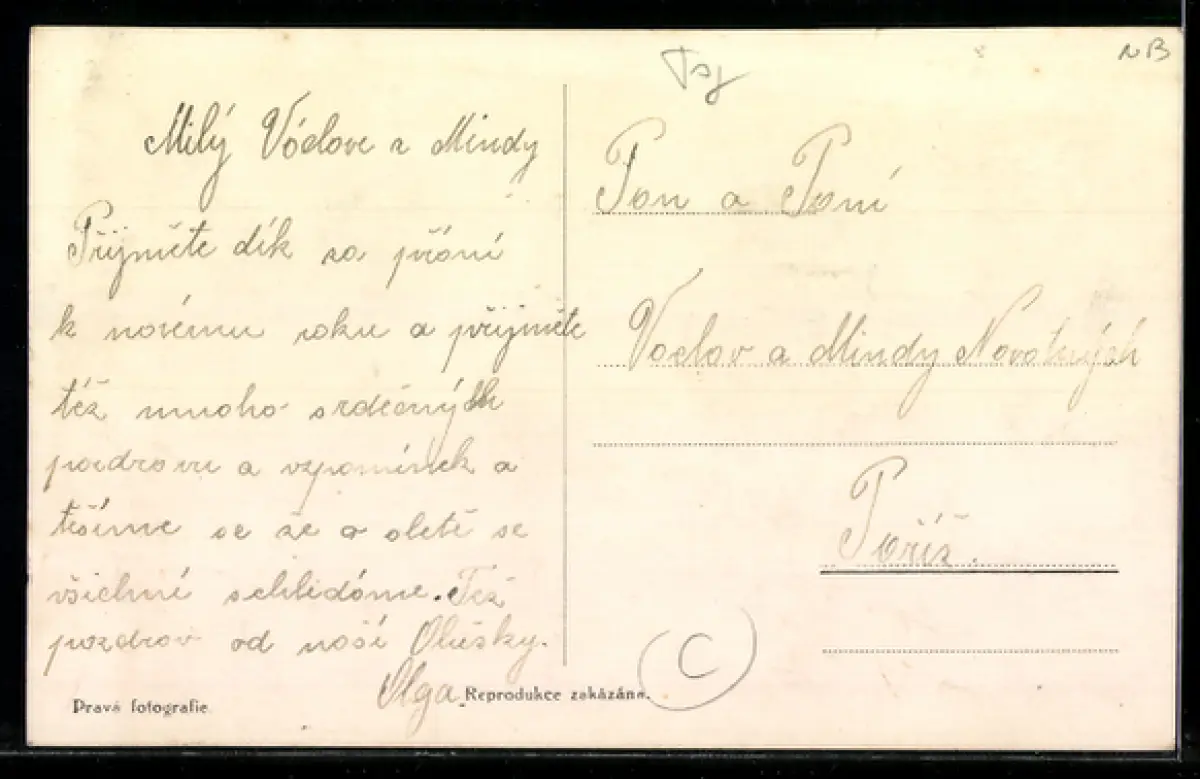 Milý Václave a Mindy
Přijměte dík za přání
k novému roku a přijměte
též mnoho srdečných
pozdravu a vzpomínek a
těšíme se že o letě se
všichni schledáme. Též
pozdrav od naší Olušky.
Olga
Pravá fotografie
Reprodukce zakázána.
NB
Pan a Paní
Václav a Mindy Novotných
Paříž.
C